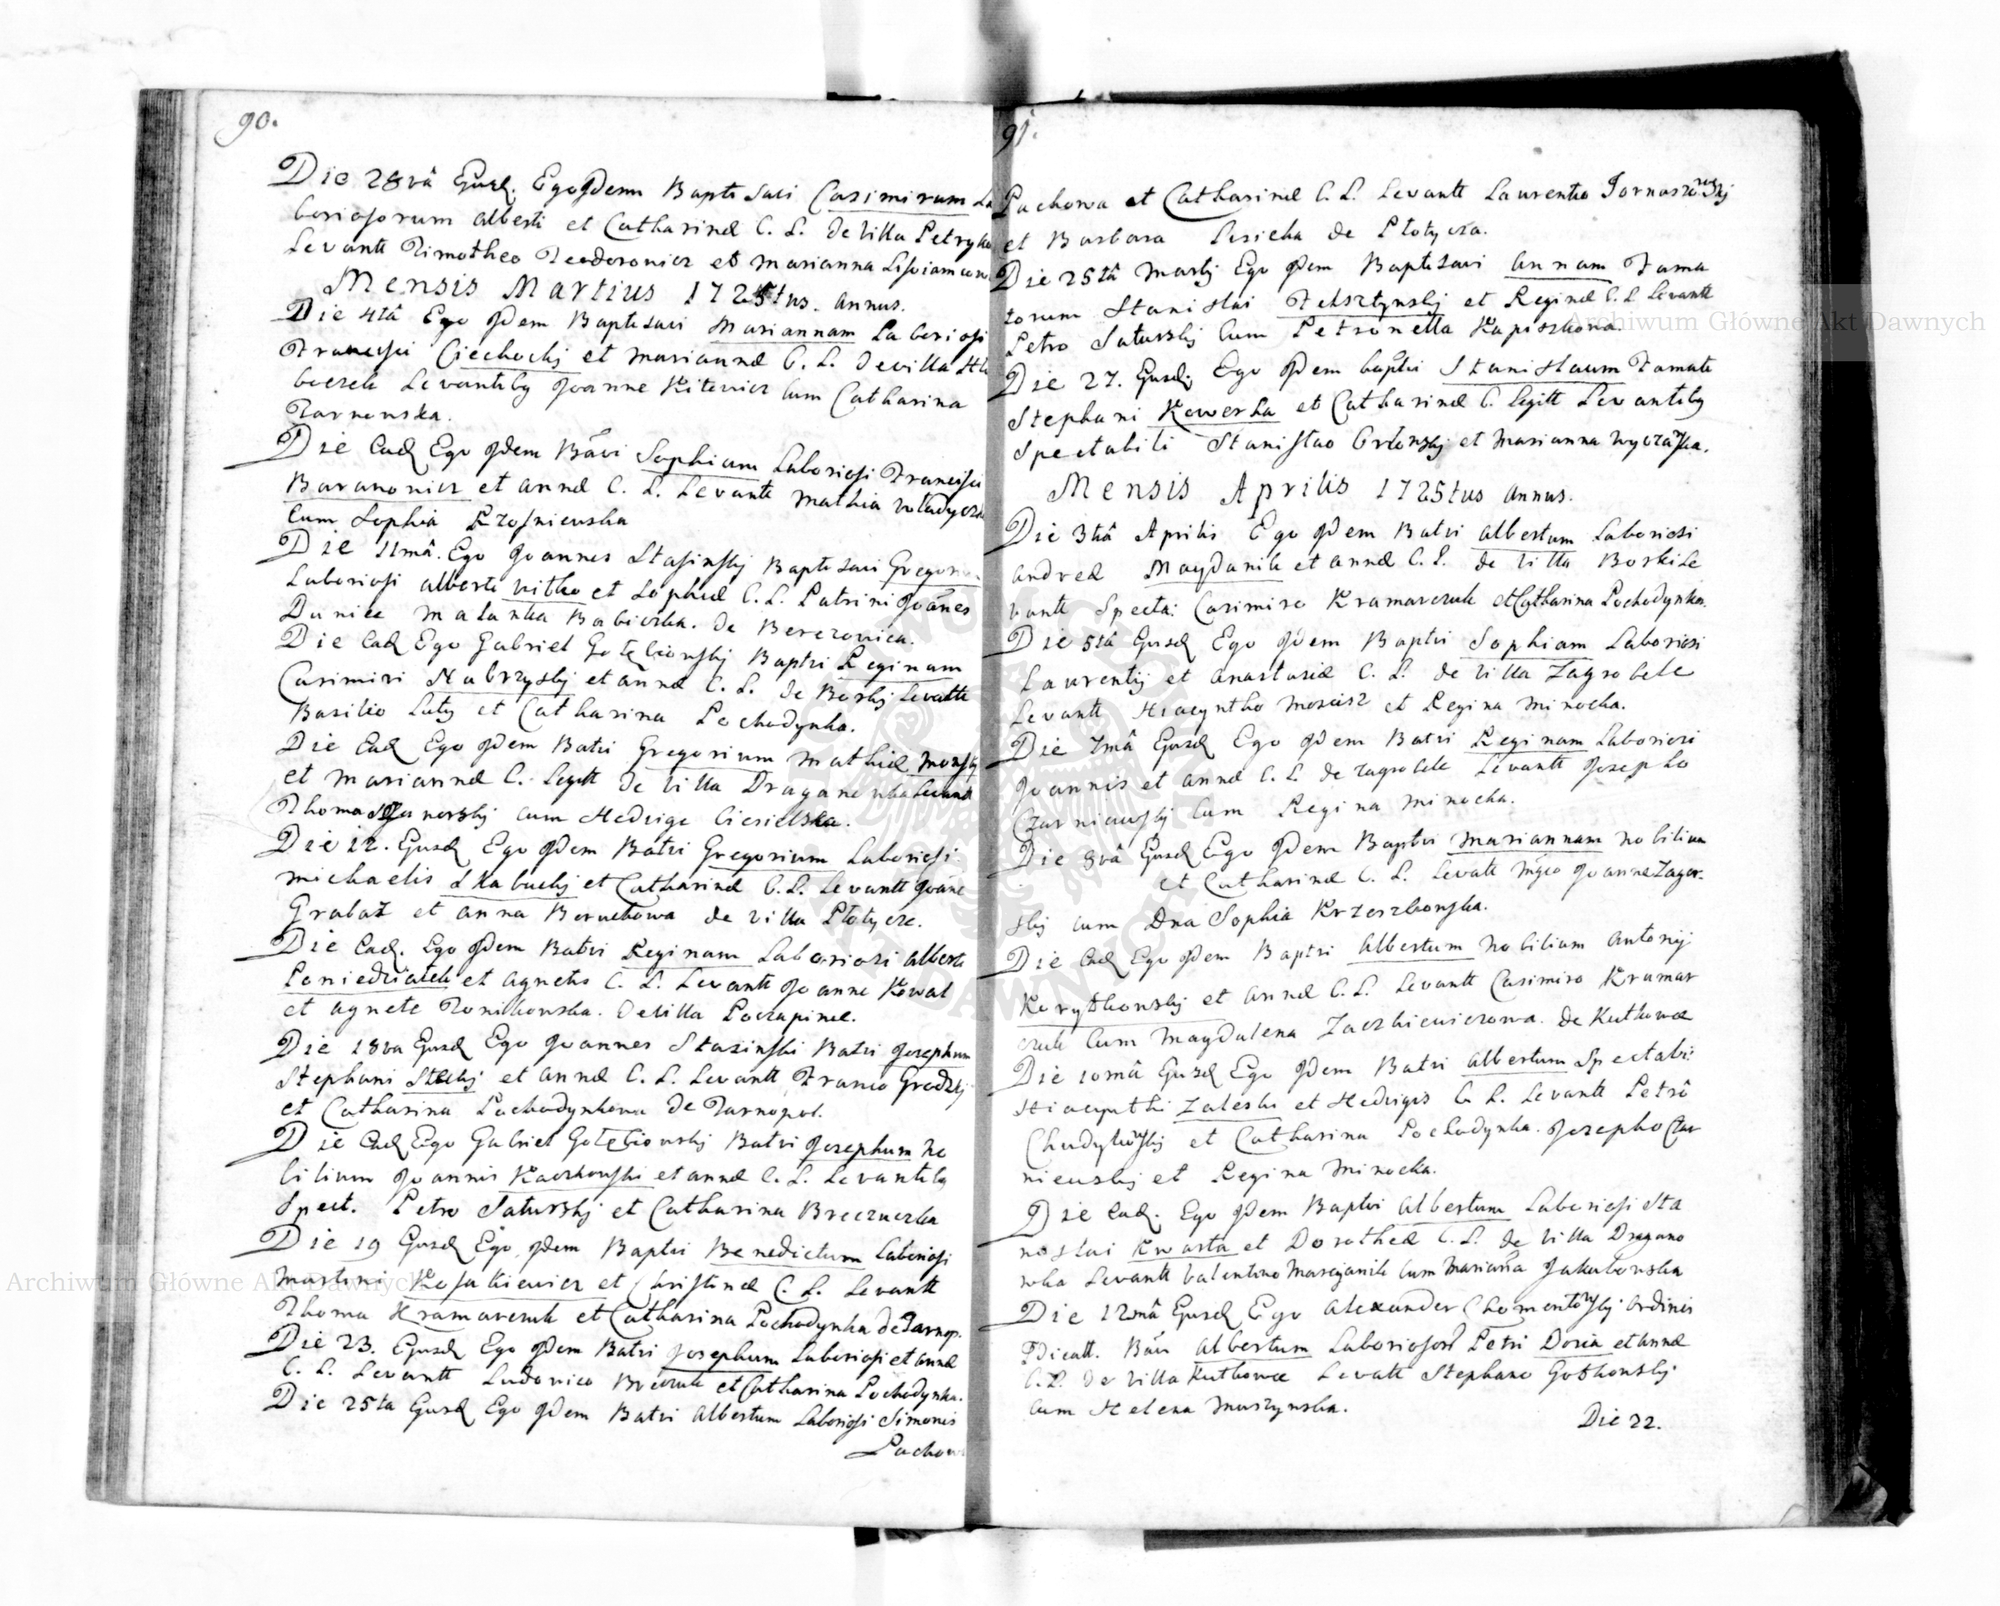 90.
Die 28vâ Eiusd. Ego Idem Baptisavi Casimirum La
boriosorum Alberti et Catharinæ C. L. De Villa Petryko
Levantt Timotheo Teodorowicz et Marianna
Mensis Martius 1725tus. annus.
Die 4tâ Ego Idem Baptisavi Mariannam Laboriosi
Francisci Ciechocki et Mariannæ C. L. De villa Hlu
boczek Levantibg Joanne Kitewicz cum Catharina
Tarnowska.
Die Ead Ego Idem Bavi Sophiam Laboriosi Francisci
Baranowicz et Annæ C. L. Levantt Mathia
cum Sophia
Die 11mâ. Ego Joannes Stasinskj Baptisavi
Laboriosi Alberti Witko et Sophiæ C. L. Patrini Joanes
Dunice Malanka Babiczka. de Berezowica.
Die Ead Ego Gabriel Gołębiowskj Baptzi Reginam
Casimiri Nabrzyskj et Annæ C. L. De Borkj Levantt
Basilio Luty et Catharina Pochodynka.
Die Ead Ego Idem Batzi Gregorium Mathiæ
et Mariannæ C. Legitt De Villa Draganowka Levantt
Thoma cum Hedvige Cieielska.
Die 12. Eiusd Ego Idem Batzi Gregorium Laboriosi
Michaelis Skabuckj et Catharinæ C. L. Levantt Joane
Grabaz et Anna Boruchowa de Villa Płotycze.
Die Ead. Ego Idem Batzi Reginam Laboriosi Alberti
Poniedziałek et Agnetis C. L. Levantt Joanne Kowal
et Agnete Tonikowska. De Villa Poczapince.
Die 18va Eiusd Ego Joannes Stazinski Batzi Josephum
Stephani et Annæ C. L. Levantt Franco Grodzkj
et Catharina Pochodynkowa De Tarnopol.
Die Ead Ego Gabriel Gołębiowskj Batzi Josephum No
bilium Joannis Kaczkowski et Annæ C. L. Levantibg
Spect. Petro Saturskj et Catharina Breczuczka
Die 19 Eiusd Ego Idem Baptzi Benedictum Laboriosi
Martini Kosakiewicz et Christinæ C. L. Levantt
Thoma Kramarczuk et Catharina Pochodynka de Tarnop.
Die 23. Eiusd Ego Idem Batzi Josephum Laboriosi et Annæ
C. L. Levantt Ludovico et Catharina Pochodynka.
Die 25ta Eiusd Ego Idem Batzi Albertum Laboriosi Simonis
Pachow
91.
Pachowa et Catharinæ C. L. Levantt Laurentio
et Barbara Lesicka de Płotycza.
Die 25tâ Martij Ego Idem Baptisavi Annam Fama
torum Stanislai Felsztynskj et Reginæ C. L. Levantt
Petro Saturskj Cum Petronella Kapiszkowa.
Die 27. Eiusd. Ego Idem baptzi Stanislaum Famati
Stephani Kowerka et Catharinæ C. Legitt Levantibg
Spectabili Stanislao Orłowskj et Marianna
Mensis Aprilis 1725tus annus.
Die 3tiâ Aprilis Ego Idem Batzi Albertum Laboriosi
Andreæ Magdanik et Annæ C. L. de Villa Borki Le
vantt Specta: Casimiro Kramarczuk et Catharina Pochodynka.
Die 5tâ Eiusd Ego Idem Baptzi Sophiam Laboriosi
Laurentij et Anastasiæ C. L. de Villa Zagrobele
Levantt Hiacyntho et Regina Minocka.
Die 7mâ Eiusd Ego Idem Batzi Reginam Laboriosi
Joannis et Annæ C. L. de Zagrobele Levantt Josepho
Czarniewskj Cum Regina Minocka.
Die 8vâ Eiusd Ego Idem Baptzi Mariannam Nobilium
et Catharinæ C. L. Levatt Joanne Zagor-
skj cum Dna Sophia Krzeszkowska.
Die Ead Ego Idem Baptzi Albertum Nobilium Antonij
Korytkowskj et Annæ C. L. Levantt Casimiro Kramar
czuk Cum Magdalena Zaczkiewiczowa. de Kutkowce
Die 10mâ Eiusd Ego Idem Batzi Albertum Spectabi:
Hiacynthi Zaleski et Hedvigis C. L. Levantt Petrô
et Catharina Pochodynka. Josepho Czar
niewskj et Regina Minocka.
Die Ead. Ego Idem Baptzi Albertum Laboriosi Sta
nislai Kwarta et Dorotheæ C. L. de Villa Dragano
wka Levantt Valentino Marcjanik Cum Marianna Jakubowska
Die 12mâ Eiusd Ego Alexander Chomentowskj Ordinis
Pdicatt. Bavi Albertum Laboriosor Petri Doria et Annæ
C. L. De Villa Kutkowce Levatt Stephano Gotkowskj
Cum Helena Muszynska.
Die 22.
Archiwum Główne Akt Dawnych
Archiwum Główne Akt Dawnych